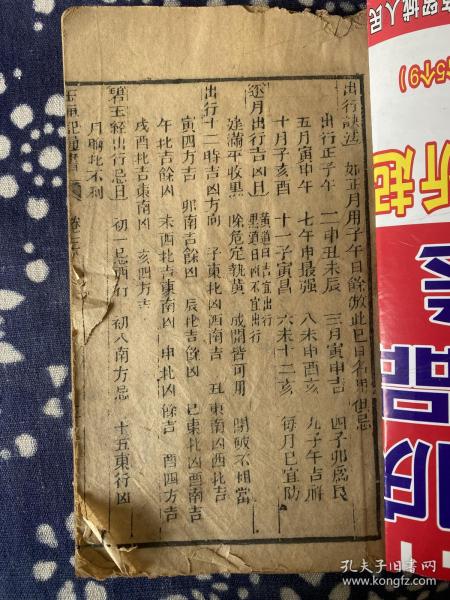 出行訣法 如正月用子午日餘放此巳日名 但忌
出行正子午 二申丑未辰 三月寅申吉 四子卯爲良
五月寅申午 七午申最强 八未申酉亥 九子午吉祥
十月子亥酉 十一子寅昌 六未十二亥 每月巳宜防
逐月出行吉凶日 黃道日吉宜出行 黑道日凶不宜出行
建滿平收黑 除危定執黃 成開皆可用 閉破不相當
出行十二時吉凶方向 子東北凶西南吉 丑東南凶西北吉
寅四方吉 卯南吉餘凶 辰北吉餘凶 巳東北凶酉南吉
午北吉餘凶 未西北吉東南凶 申北凶餘吉 酉四方吉
戌酉北吉東南凶 亥四方吉
碧玉經出行忌日 初一忌西行 初八南方忌 十五東行凶
月晦北不利
玉匣記通書 卷之
貿城人民
5个9)
折起
孔夫子旧书网
www.kongfz.com